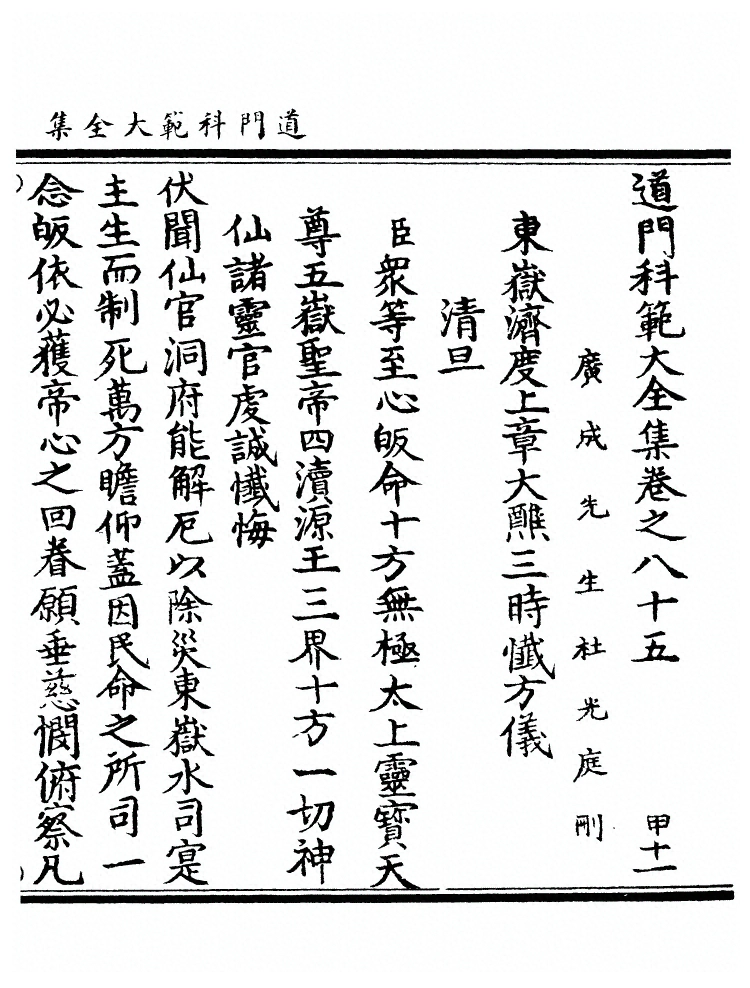 道門科範大全集
道門科範大全集卷之八十五 甲十一
廣成先生杜光庭刪
東嶽濟度上章大醮三時懺方儀
清旦
臣衆等至心皈命十方無極太上靈寶天
尊五嶽聖帝四瀆源王三界十方一切神
仙諸靈官虔誠懺悔
伏聞仙官洞府能解厄以除災東嶽水司寔
主生而制死萬方瞻仰蓋因民命之所司一
念皈依必獲帝心之回眷願垂慈憫俯察凡